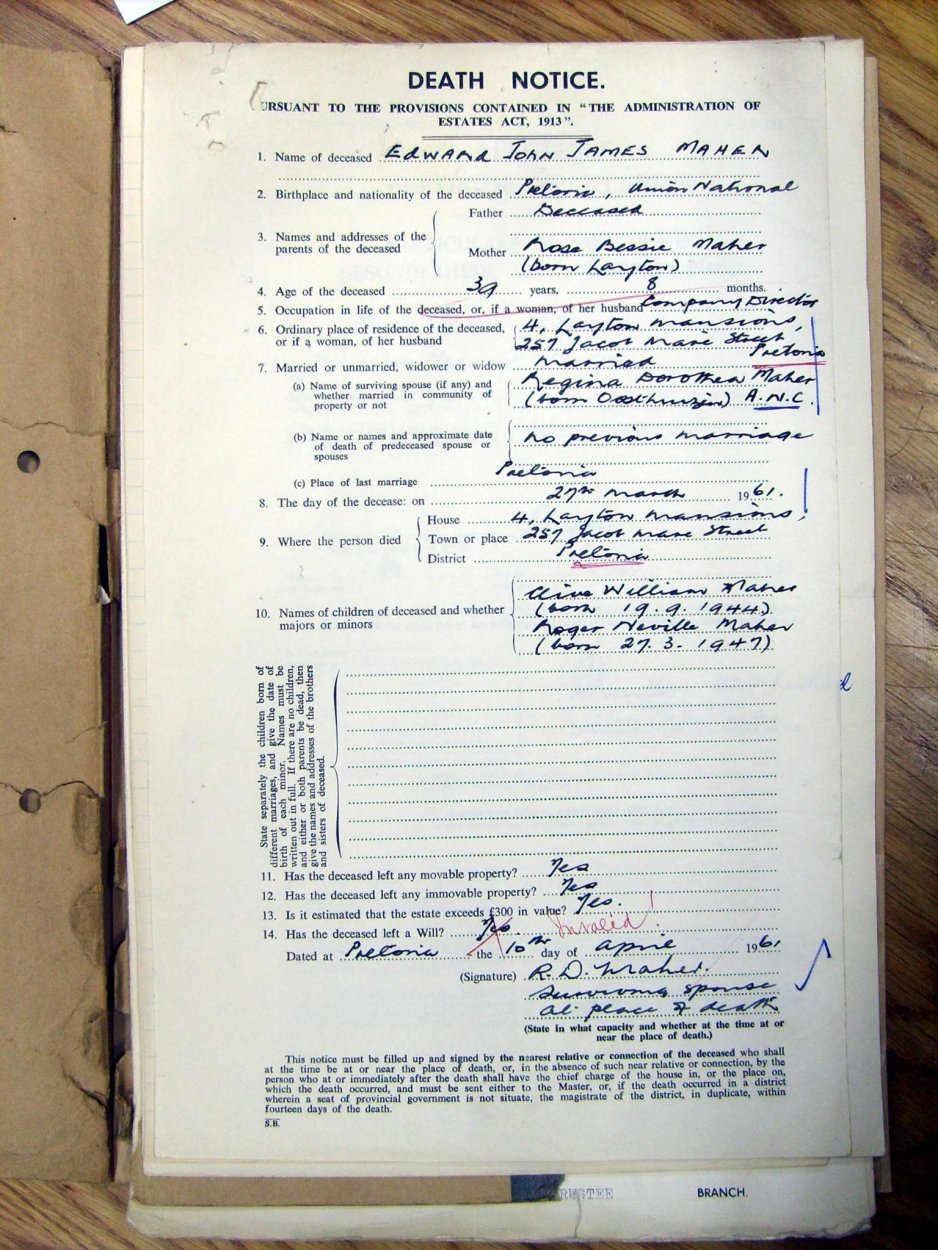 DEATH NOTICE.
URSUANT TO THE PROVISIONS CONTAINED IN "THE ADMINISTRATION OF
ESTATES ACT, 1913".
1. Name of deceased EDWARD JOHN JAMES MAHER
2. Birthplace and nationality of the deceased Pretoria, Union National
Father Deceased
3. Names and addresses of the
parents of the deceased
Mother Rose Bessie Maher
(born Layton)
4. Age of the deceased 39 years, 8 months.
5. Occupation in life of the deceased, or, if a woman, of her husband Company Director
6. Ordinary place of residence of the deceased,
or if a woman, of her husband
4, Layton Mansions,
257 Jacob Mare Street
Pretoria
7. Married or unmarried, widower or widow married
(a) Name of surviving spouse (if any) and
whether married in community of
property or not
Regina Dorothea Maher
(born Oosthuizen) A.N.C.
(b) Name or names and approximate date
of death of predeceased spouse or
spouses
no previous marriage
(c) Place of last marriage Pretoria
8. The day of the decease: on 27th March 1961.
9. Where the person died
House 4, Layton Mansions,
Town or place 257 Jacob Mare Street
District Pretoria
10. Names of children of deceased and whether
majors or minors
Clive William Maher
(born 19.9.1944)
Roger Neville Maher
(born 27.3.1947)
State separately the children born of
different marriages, and give the date of
birth of each minor. Names must be
written out in full. If there are no children,
and either or both parents be dead, then
give the names and addresses of the brothers
and sisters of deceased.
11. Has the deceased left any movable property? Yes
12. Has the deceased left any immovable property? Yes
13. Is it estimated that the estate exceeds £300 in value? Yes.
14. Has the deceased left a Will? Yes. Invalid!
Dated at Pretoria the 10th day of April 1961
(Signature) R.D. Maher.
Surviving spouse
at place of death
(State in what capacity and whether at the time at or
near the place of death.)
This notice must be filled up and signed by the nearest relative or connection of the deceased who shall
at the time be at or near the place of death, or, in the absence of such near relative or connection, by the
person who at or immediately after the death shall have the chief charge of the house in, or the place on,
which the death occurred, and must be sent either to the Master, or, if the death occurred in a district
wherein a seat of provincial government is not situate, the magistrate of the district, in duplicate, within
fourteen days of the death.
S.B.
TRUSTEE BRANCH.